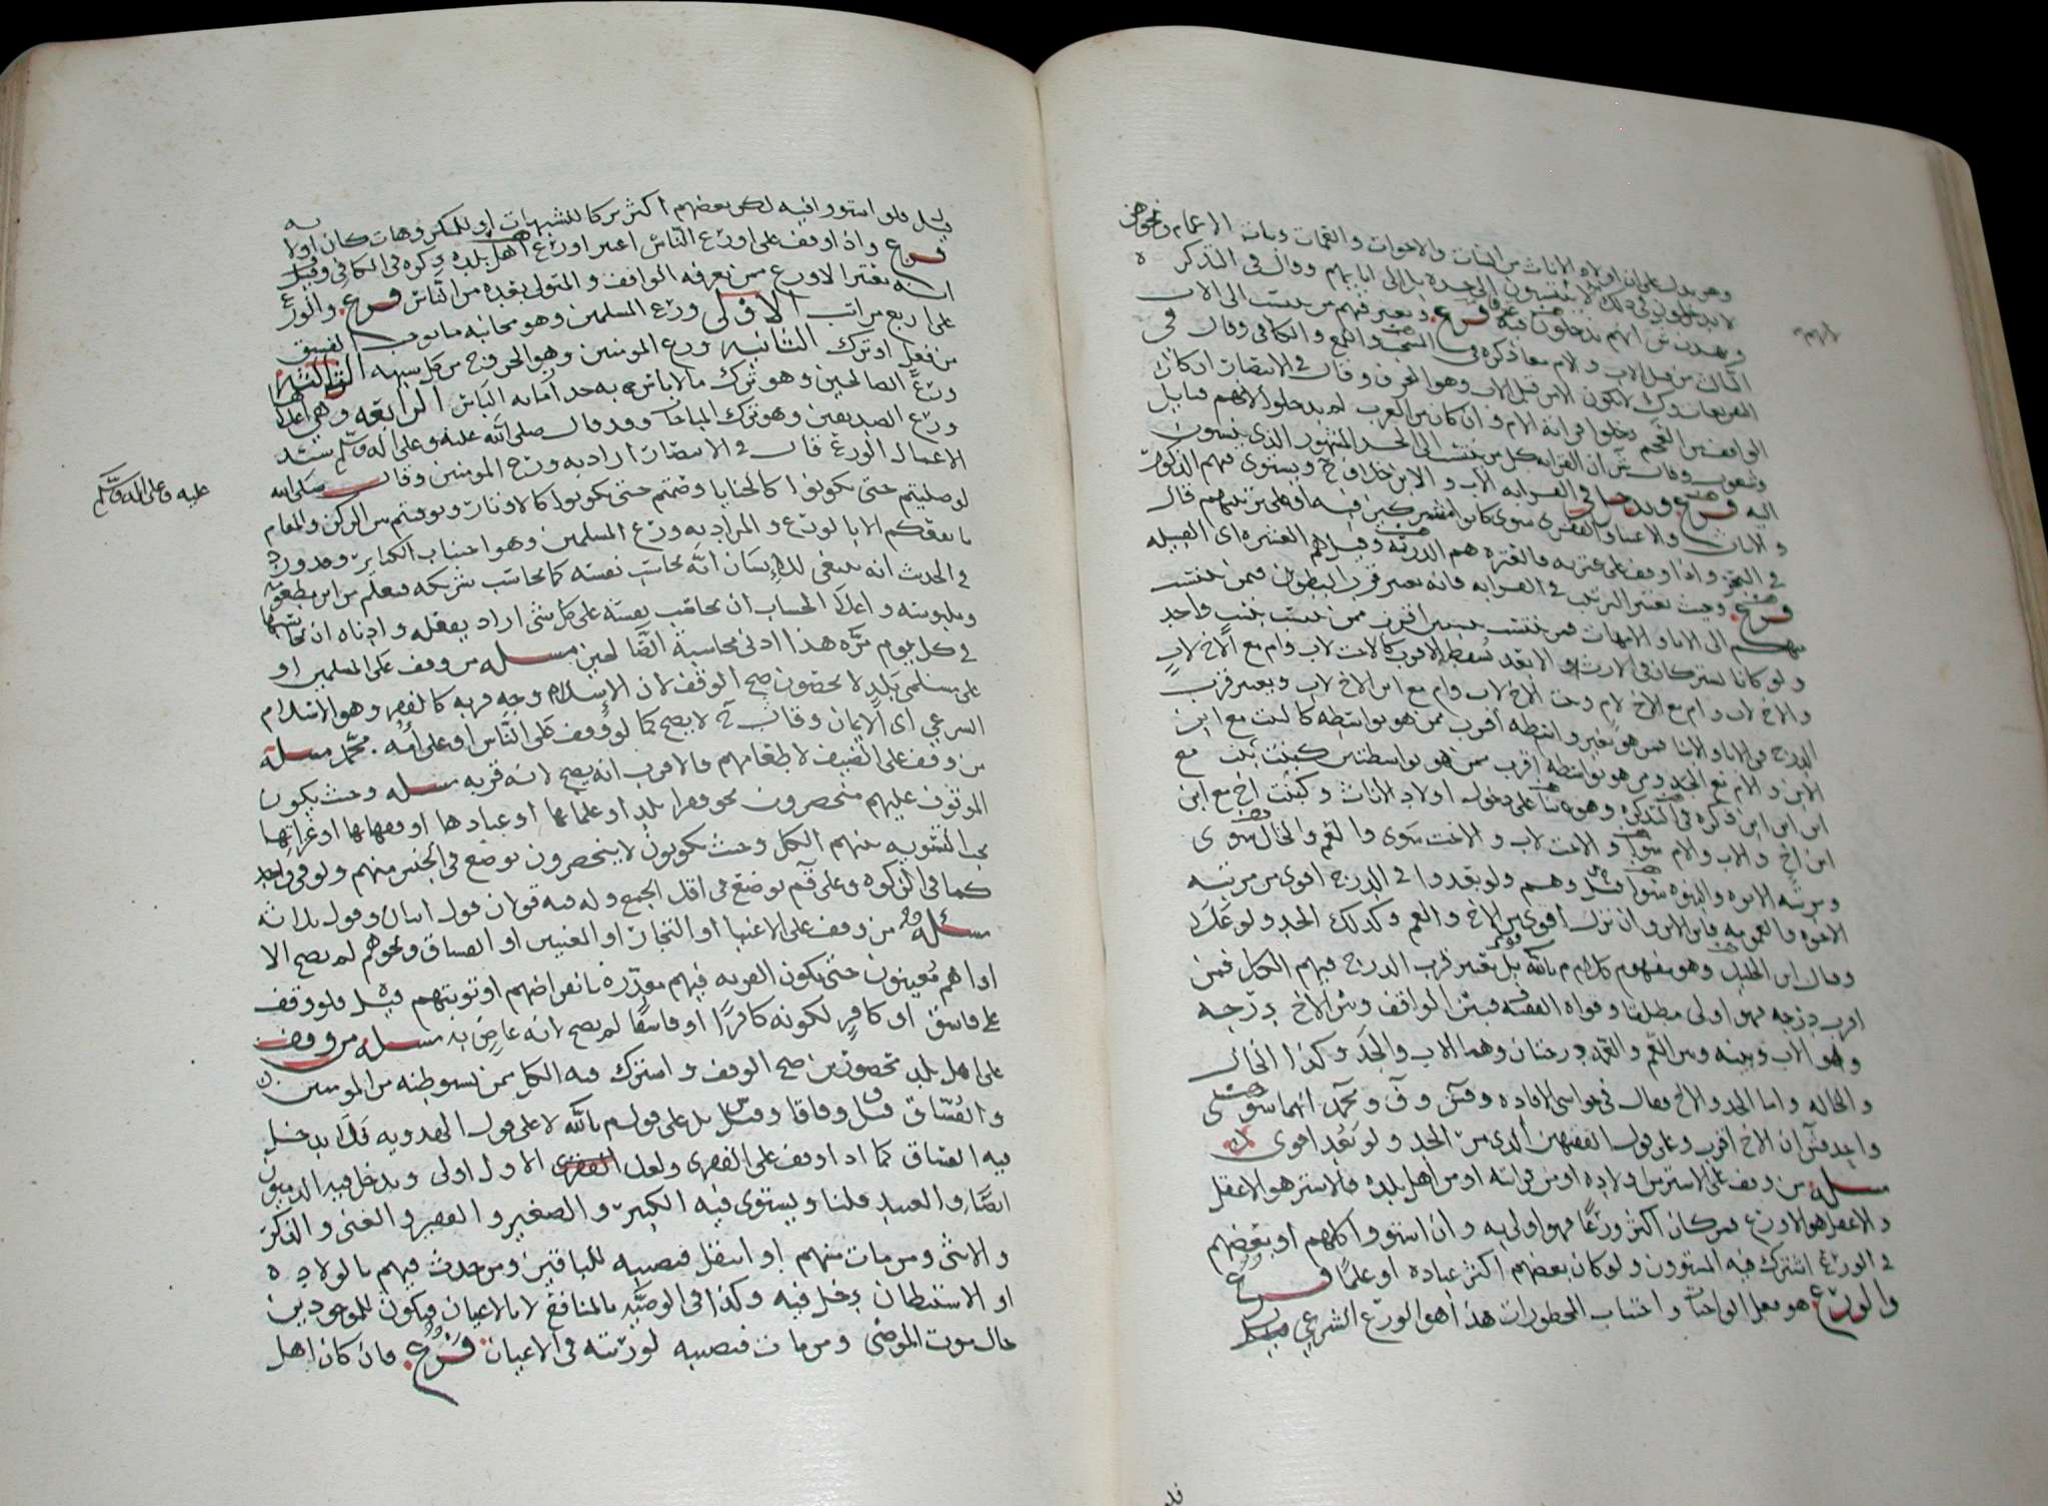 وهو يدل على ان اولاد الاناث من البنات والاخوات والعمات وبنات الاعمام ونحوهن
لا يدخلون في ذلك لا ينتسبون الى جده بل الى ابايهم وقال في التذكره
انهم يدخلون فيه فرع ويعتبر فيهم من ينتسب الى الاب
من قبل الاب والام معا ذكره في واللمع والكافي وقال في
لا يكون الا من قبل الاب وهو العرف وقال في الانتصار ان كان
الواقف من العجم دخلوا قرابة الام وان كان من العرب لم يدخلوا لانهم قبايل
وشعوب وقال ان القرابه كل من ينتسب الى الجد المشهور الذي ينسبون
اليه فرع ويدخل في القرابه الاب والابن ويستوي فيهم الذكور
والاناث والاغنيا والفقرى سوى كانوا فيه او على قال
في واذا وقف على عترته فالعتره هم الذريه وقيل هم العشيره اي القبيله
فرع وحيث يعتبر الترتيب في القرابه فانه يعتبر قرب البطون فمن ينتسب
الى الابا والامهات فمن ينتسب بنسبين اقرب ممن ينتسب بنسب واحد
ولو كانا يشتركان في الارث والابعد يسقط الاقرب كالاخت لاب وام مع الاخ لاب
والاخ لاب وام مع الاخ لام وبنت الاخ لاب وام مع ابن الاخ لاب ويعتبر قرب
الدرج في الابا والابنا فمن هو بغير واسطه اقرب ممن هو بواسطه كالبنت مع ابن
الابن والام مع الجد ومن هو بواسطه اقرب ممن هو بواسطتين كبنت بنت مع
ابن ابن ابن ذكره في التذكره وهو بنا على دخول اولاد الاناث وكبنت اخ مع ابن
ابن اخ والاب والام سوى والاخت لاب والاخت سوى والعم والخال سوى
ومرتبه الابوه والبنوه سوا قيل وهم ولو بعدوا في الدرج اقوى من مرتبه
الاخوه والعمومه فابن الابن وان نزل اقوى من الاخ والعم وكذلك الجد ولو علا
وقال ابن الخليل وهو مفهوم كلام م بالله بل يعتبر قرب الدرج فيهم الكل فمن
اقرب درجه فهو اولى مطلقا وقواه الفقيه فبين الواقف وبين الاخ درجه
وهو الاب وبينه وبين العم والعمه درجتان وهما الاب والجد وكذا الخال
والخاله واما الجد والاخ فقال في حواشي الافاده و وق ومحمد انهما سوى
ان الاخ اقرب وعلى قول الفقيهين الذي من الجد ولو بعد اقوى
مسله من وقف على الاستر من اولاده او من قرابته او من اهل بلده فالاستر هو الاعقل
والاعقل هو الاورع فمن كان اكثر ورعا فهو اولى به وان استووا كلهم او بعضهم
في الورع اشترك فيه المستوون ولو كان بعضهم اكثر عباده او علما فرع
والورع هو فعل الواجبات واجتناب المحظورات هذا هو الورع الشرعي
قيل فلو استووا فيه لكن بعضهم اكثر تركا للشبهات او للمكروهات كان اولا به
فرع واذا وقف على اورع الناس اعتبر اورع اهل بلده ذكره في الكافي وقيل
انه يعتبر الاورع ممن يعرفه الواقف والمتولي بعده من الناس فرع والورع
على اربع مراتب الاولى ورع المسلمين وهو مجانبه ما يوجب الفسق
من فعل او ترك الثانيه ورع المومنين وهو الخروج من كل شبهه الثالثه
ورع الصالحين وهو ترك ما لا باس به حذر ما به الباس الرابعه وهي اعلا
ورع الصديقين وهو ترك المباحات وقد قال صلى الله عليه وعلى اله وسلم سيد
الاعمال الورع قال في الانتصار اراد به ورع المومنين وقال صلى الله
عليه وعلى اله وسلم
لو صليتم حتى تكونوا كالحنايا وصمتم حتى تكونوا كالاوتار وتوفيتم بين الركن والمقام
ما نفعكم الا بالورع والمراد به ورع المسلمين وهو اجتناب الكبائر وقد ورد
في الحديث انه ينبغي للانسان انه يحاسب نفسه كما يحاسب شريكه فيعلم من اين مطعمه
وملبوسه واعلا الحساب ان يحاسب نفسه على كل شي اراد يفعله وادناه ان يحاسبها
في كل يوم مره هذا ادنى محاسبة مسله من وقف على المسلمين او
على مسلمي بلد لا يحصون صح الوقف لان الاسلام وجه قربه كالفقر وهو الاسلام
الشرعي اي الايمان وقال لا يصح كما لو وقف على الناس او على امة محمد مسله
من وقف على الضيف لاطعامهم فالاقرب انه يصح لانه قربه مسله وحيث يكون
الموقوف عليهم منحصرون نحو فقرا بلد او علمائها او عبادها او فقهائها او
يجب التسويه بينهم الكل وحيث يكونون لا ينحصرون يوضع في الجنس منهم ولو في واحد
كما في الزكوه وعلى قول م يوضع في اقل الجمع وله فيه قولان قول اثنان وقول ثلاثه
مسئله من وقف على الاغنيا او التجار او المغنيين او الفساق ونحوهم لم يصح الا
اذا هم معينون حتى يكون القربه فيهم مقدره بانقراضهم او توبتهم قيل فلو وقف
على فاسق او كافر لكونه كافرا او فاسقا لم يصح لانه عاص به مسله من وقف
على اهل بلد محصورين صح الوقف واشترك فيه الكل ممن يستوطنه من المومنين
والفساق قيل وفاقا وقيل بل على قول م بالله لا على قول الهدويه فلا يدخل
فيه الفساق كما اذا وقف على الفقرى ولعل الاول اولى ويدخل فيه الذميون
ايضا والعبيد قلنا ويستوي فيه الكبير والصغير والفقير والغني والذكر
والانثى ومن مات منهم او انتقل فنصيبه للباقين ومن حدث فيهم بالولاده
او الاستيطان دخل فيه وكذا في الوصيه بالمنافع لا بالاعيان فيكون للموجودين
حال موت الموصي ومن مات فنصيبه لورثته في الاعيان فرع فان كان اهل